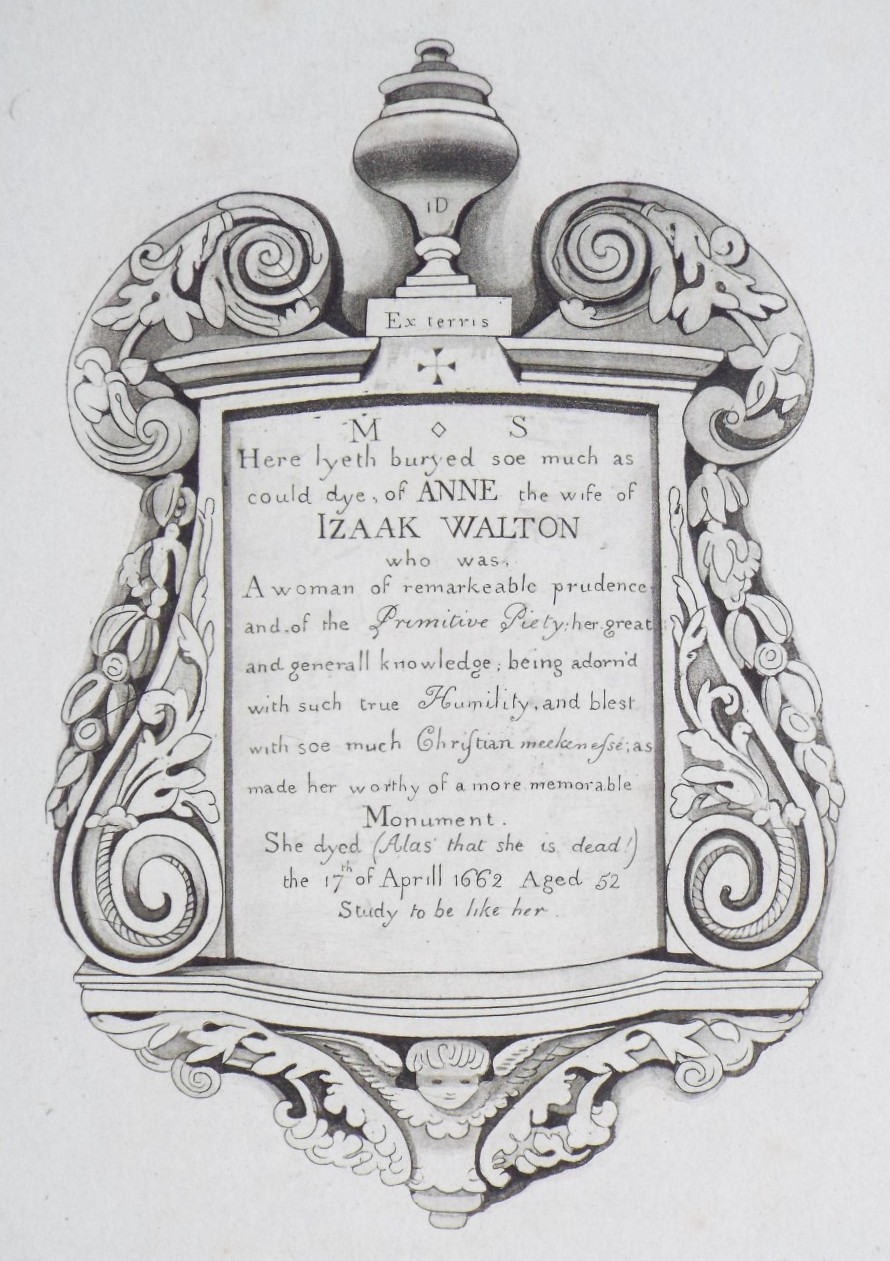 ID
Ex terris
M ◇ S
Here lyeth buryed soe much as
could dye, of ANNE the wife of
IZAAK WALTON
who was,
A woman of remarkeable prudence
and of the Primitive Piety; her great
and generall knowledge; being adorn'd
with such true Humility, and blest
with soe much Chriſtian meekeneſse; as
made her worthy of a more memorable
Monument.
She dyed (Alas that she is dead!)
the 17th of Aprill 1662 Aged 52
Study to be like her.